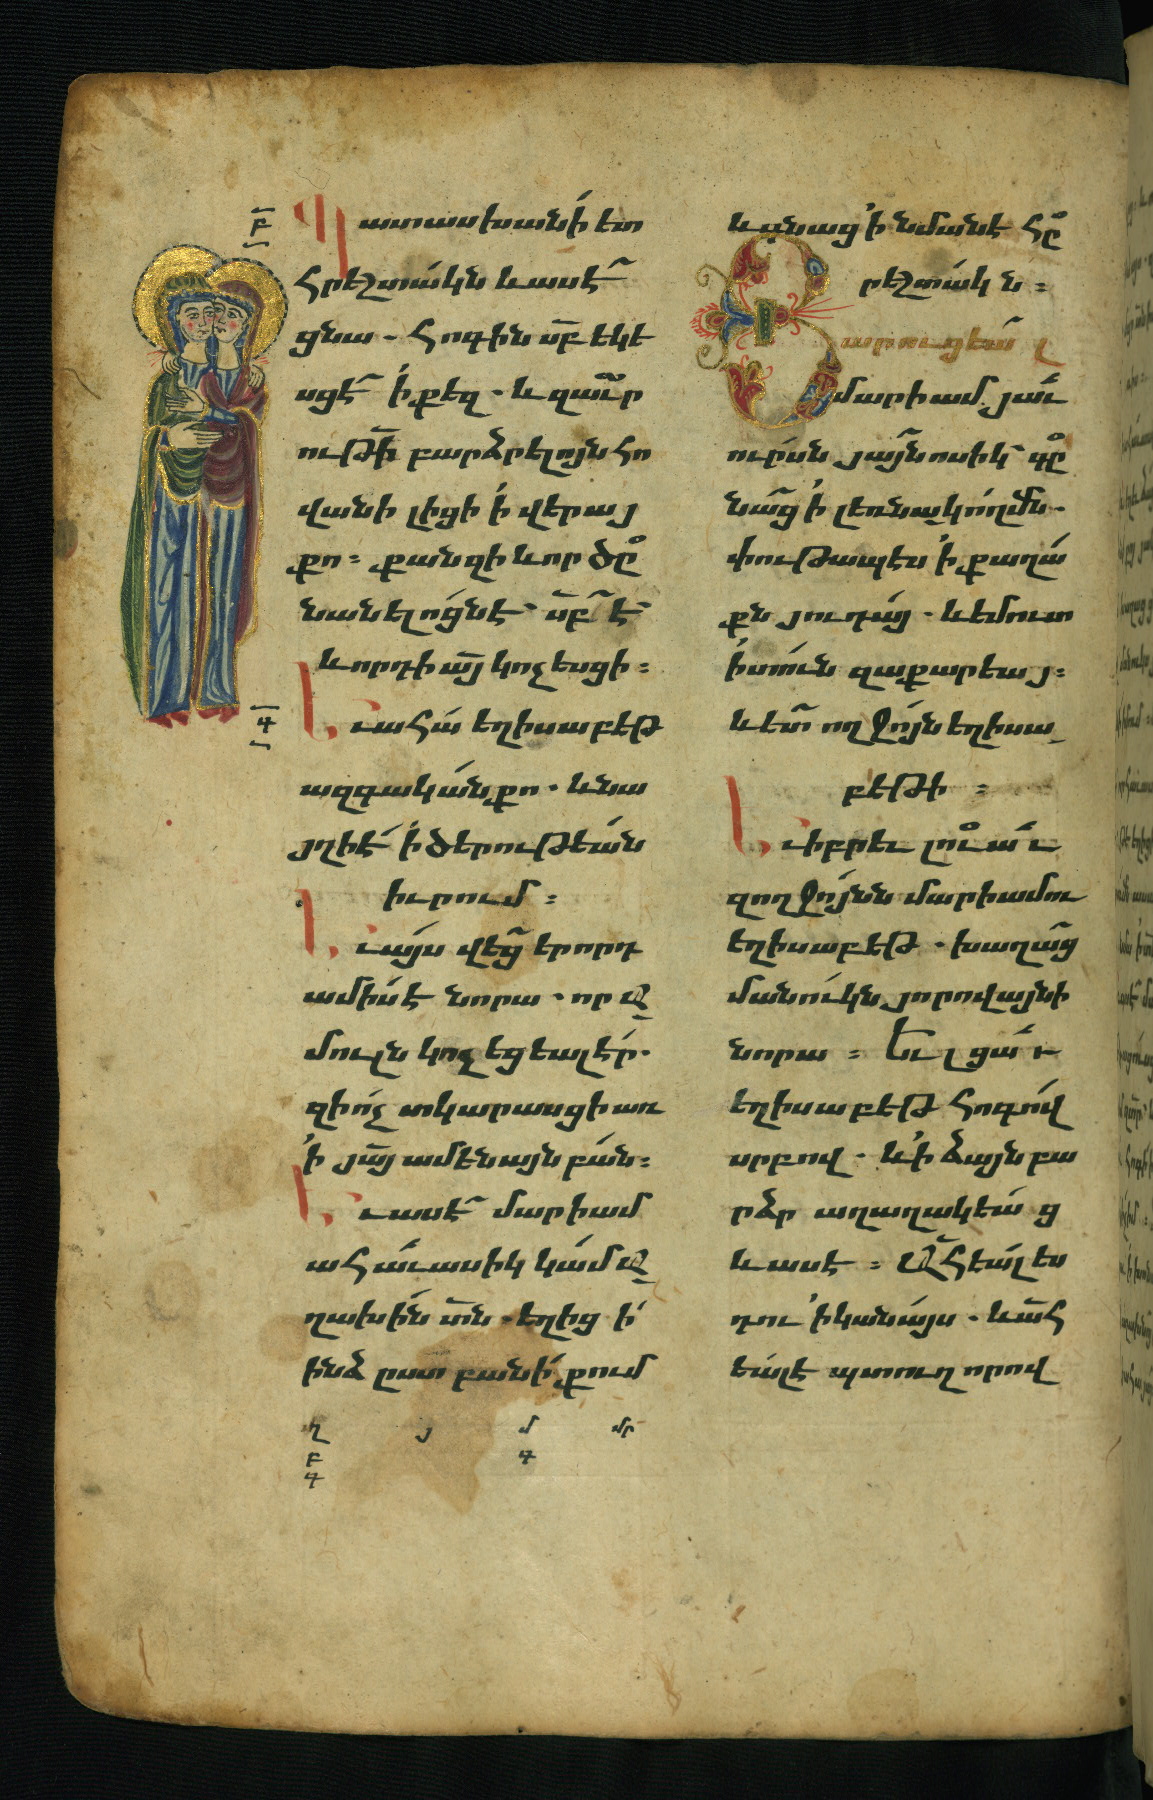 Բ
Պատասխանի ետ
հրեշտակն և ասէ
ցնա. Հոգին սբ եկե
սցէ ի քեզ. և զաւր
ութի բարձրելոյն հո
վանի լիցի ի վերայ
քո: քանզի և որ ծը
նանելոցնէ սբ է
և որդի այ կոչեսցի:
Դ
Եւ ահա եղիսաբեթ
ազգական քո. և նա
յղի է ի ծերութեան
իւրում:
Եւ այս վեց երորդ
ամիս է նորա. որ ա
մուլն կոչեցեալ էր.
զի ոչ տկարասցի առ
ի յայ ամենայն բան:
Եւ ասէ մարիամ
ահաւասիկ կամ ա
ղախին տն. եղիցի
ինձ ըստ բանի քում
և գնաց ի նմանէ հը
րեշտակն:
Յարուցեալ
մարիամ յաւ
ուրսն յայնոսիկ գը
նաց ի լեռնակողմն.
փութապէս ի քաղա
քն յուդայ. և եմուտ
ի տուն զաքարեայ:
և ետ ողջոյն եղիսա
բեթի:
Եւ իբրեւ լուաւ
զողջոյնն մարիամու
եղիսաբեթ. խաղաց
մանուկն յորովայնի
նորա: Եւ լցաւ
եղիսաբեթ հոգով
սրբով. և ի ձայն բա
րձր աղաղակեաց
և ասէ: Աւրհեալ ես
դու ի կանայս. և աւրհ
եալ է պտուղ որովայնի
Ղ Յ Մ Մր
Բ Դ
Դ